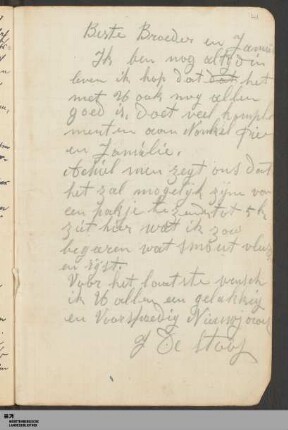 Beste Broeder en Famili
Ik ben nog altyd in
leven ik hop dat dat het
met U ook nog allen
goed is. doet veel kompli
menten aan Nonkel Drie
en Famielie.
Achiel men zegt ons dat
het zal mogelijk zijn van
een pakje te zenden tot 5 k
ziet hier wat ik zou
begaeren wat smout vlees
en rijst.
Voor het laatste wensch
ik U allen een gelukkig
en Voorspoedig Nieuwjaar
J De Stoof